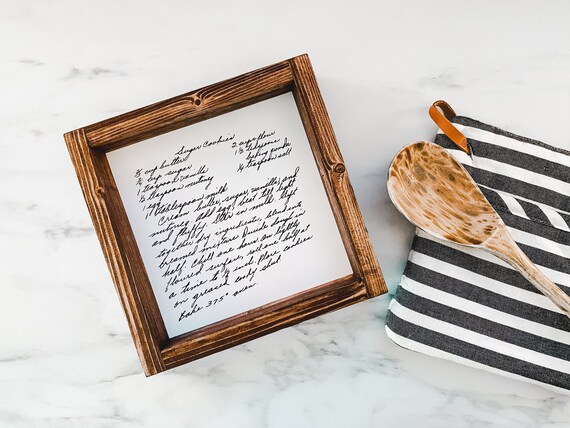 Sugar Cookies
cup butter
cup sugar
1 teaspoon vanilla
teaspoon nutmeg
1 Tablespoon milk
2 cups flour
1½ teaspoons
baking powder
¼ teaspoon salt
Cream butter, sugar, vanilla and
nutmeg. Add egg; beat till light
and fluffy. Stir in milk. Sift
together dry ingredients, blend into
creamed mixture. Divide dough in
half. Chill one hour. On lightly
floured surface, roll one half at
a time to Place cookies
on greased cooky sheet.
Bake 375° oven.